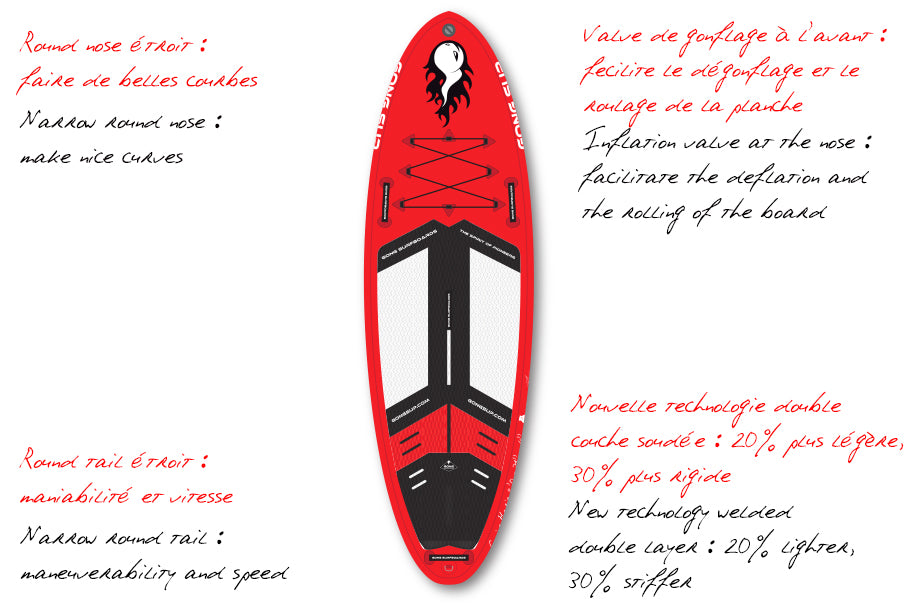 Round nose étroit :
faire de belles courbes
Narrow round nose :
make nice curves
Valve de gonflage à l'avant :
fecilite le dégonflage et le
roulage de la planche
Inflation valve at the nose :
facilitate the deflation and
the rolling of the board
GONG SUP
GONG SUP
GONG SURFBOARDS
THE SPIRIT OF PIONEERS
GONG SURFBOARDS
GONGSUP.COM
GONGSUP.COM
GONG
GONG SURFBOARDS
Round tail étroit :
maniabilité et vitesse
Narrow round tail :
maneuverability and speed
Nouvelle technologie double
couche soudée : 20% plus légère,
30% plus rigide
New technology welded
double layer : 20% lighter,
30% stiffer